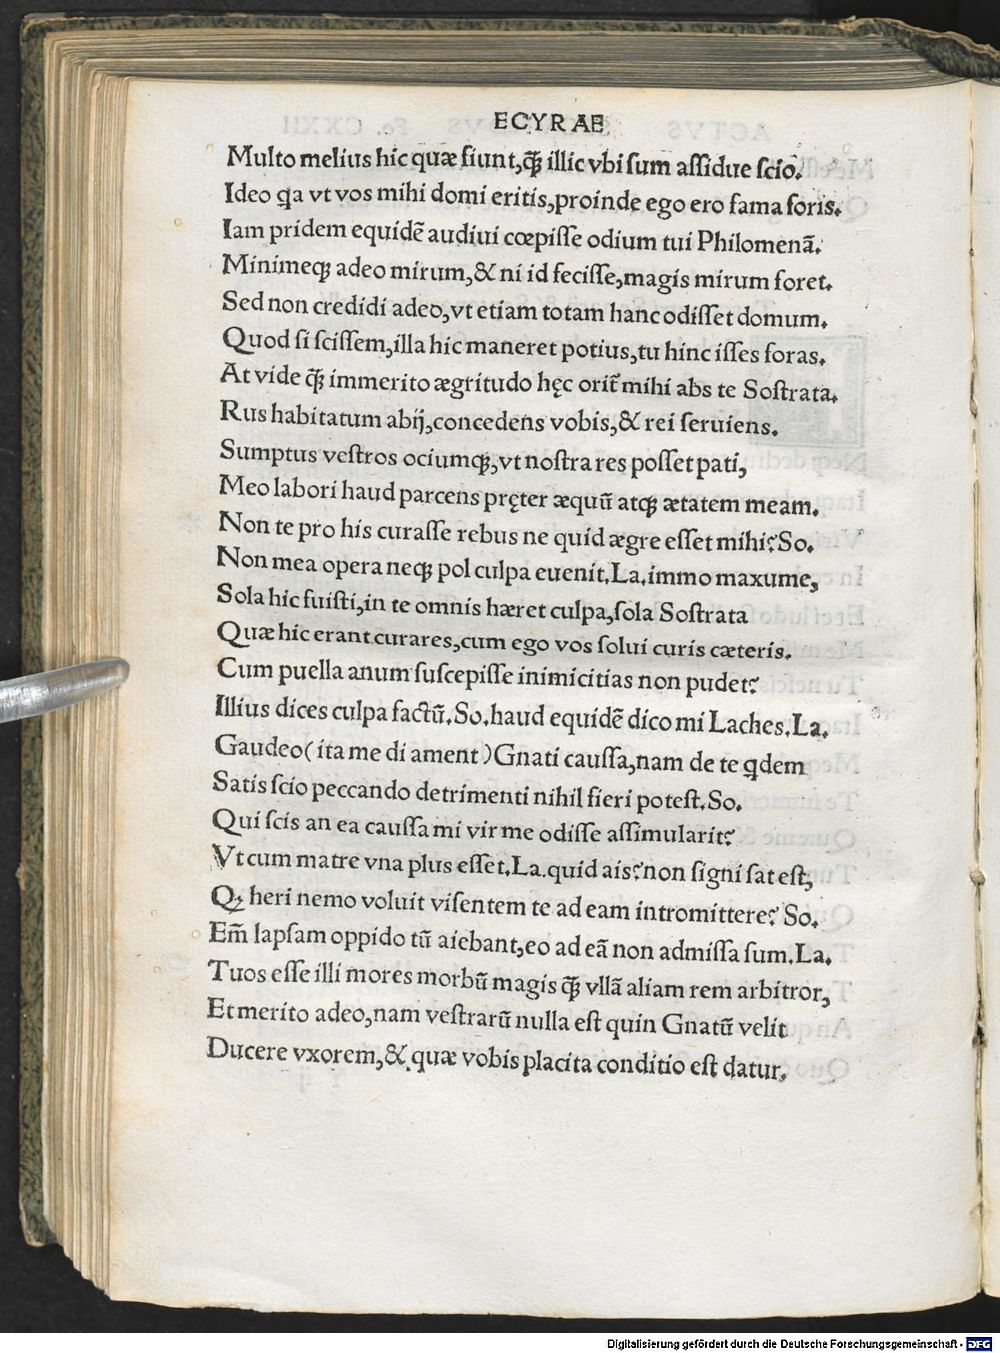 ECYRAE
Multo melius hic quæ fiunt,ꝙ̃ illic vbi ſum aſſidue ſcio.
Ideo ꝗa vt vos mihi domi eritis,proinde ego ero fama foris.
Iam pridem equidẽ audiui cœpiſſe odium tui Philomenã.
Minimeqꝫ adeo mirum,& ni id feciſſe,magis mirum foret.
Sed non credidi adeo,vt etiam totam hanc odiſſet domum.
Quod ſi ſciſſem,illa hic maneret potius,tu hinc iſſes foras.
At vide ꝙ̃ immerito ægritudo hęc orit᷑ mihi abs te Soſtrata.
Rus habitatum abij,concedens vobis,& rei ſeruiens.
Sumptus veſtros ociumqꝫ,vt noſtra res poſſet pati,
Meo labori haud parcens pręter æquũ atqꝫ ætatem meam.
Non te pro his curaſſe rebus ne quid ægre eſſet mihi? So.
Non mea opera neqꝫ pol culpa euenit.La.immo maxume,
Sola hic fuiſti,in te omnis hæret culpa,ſola Soſtrata
Quæ hic erant curares,cum ego vos ſolui curis cæteris.
Cum puella anum ſuſcepiſſe inimicitias non pudet?
Illius dices culpa factũ.So.haud equidẽ dico mi Laches.La.
Gaudeo(ita me di ament)Gnati cauſſa,nam de te ꝗdem
Satis ſcio peccando detrimenti nihil fieri poteſt.So.
Qui ſcis an ea cauſſa mi vir me odiſſe aſſimularit?
Vt cum matre vna plus eſſet.La.quid ais?non ſigni ſat eſt,
Qꝫ heri nemo voluit viſentem te ad eam intromittere? So.
Em̃ lapſam oppido tũ aiebant,eo ad eã non admiſſa ſum.La.
Tuos eſſe illi mores morbũ magis ꝙ̃ vllã aliam rem arbitror,
Et merito adeo,nam veſtrarũ nulla eſt quin Gnatũ velit
Ducere vxorem,& quæ vobis placita conditio eſt datur.
Digitalisierung gefördert durch die Deutsche Forschungsgemeinschaft - DFG